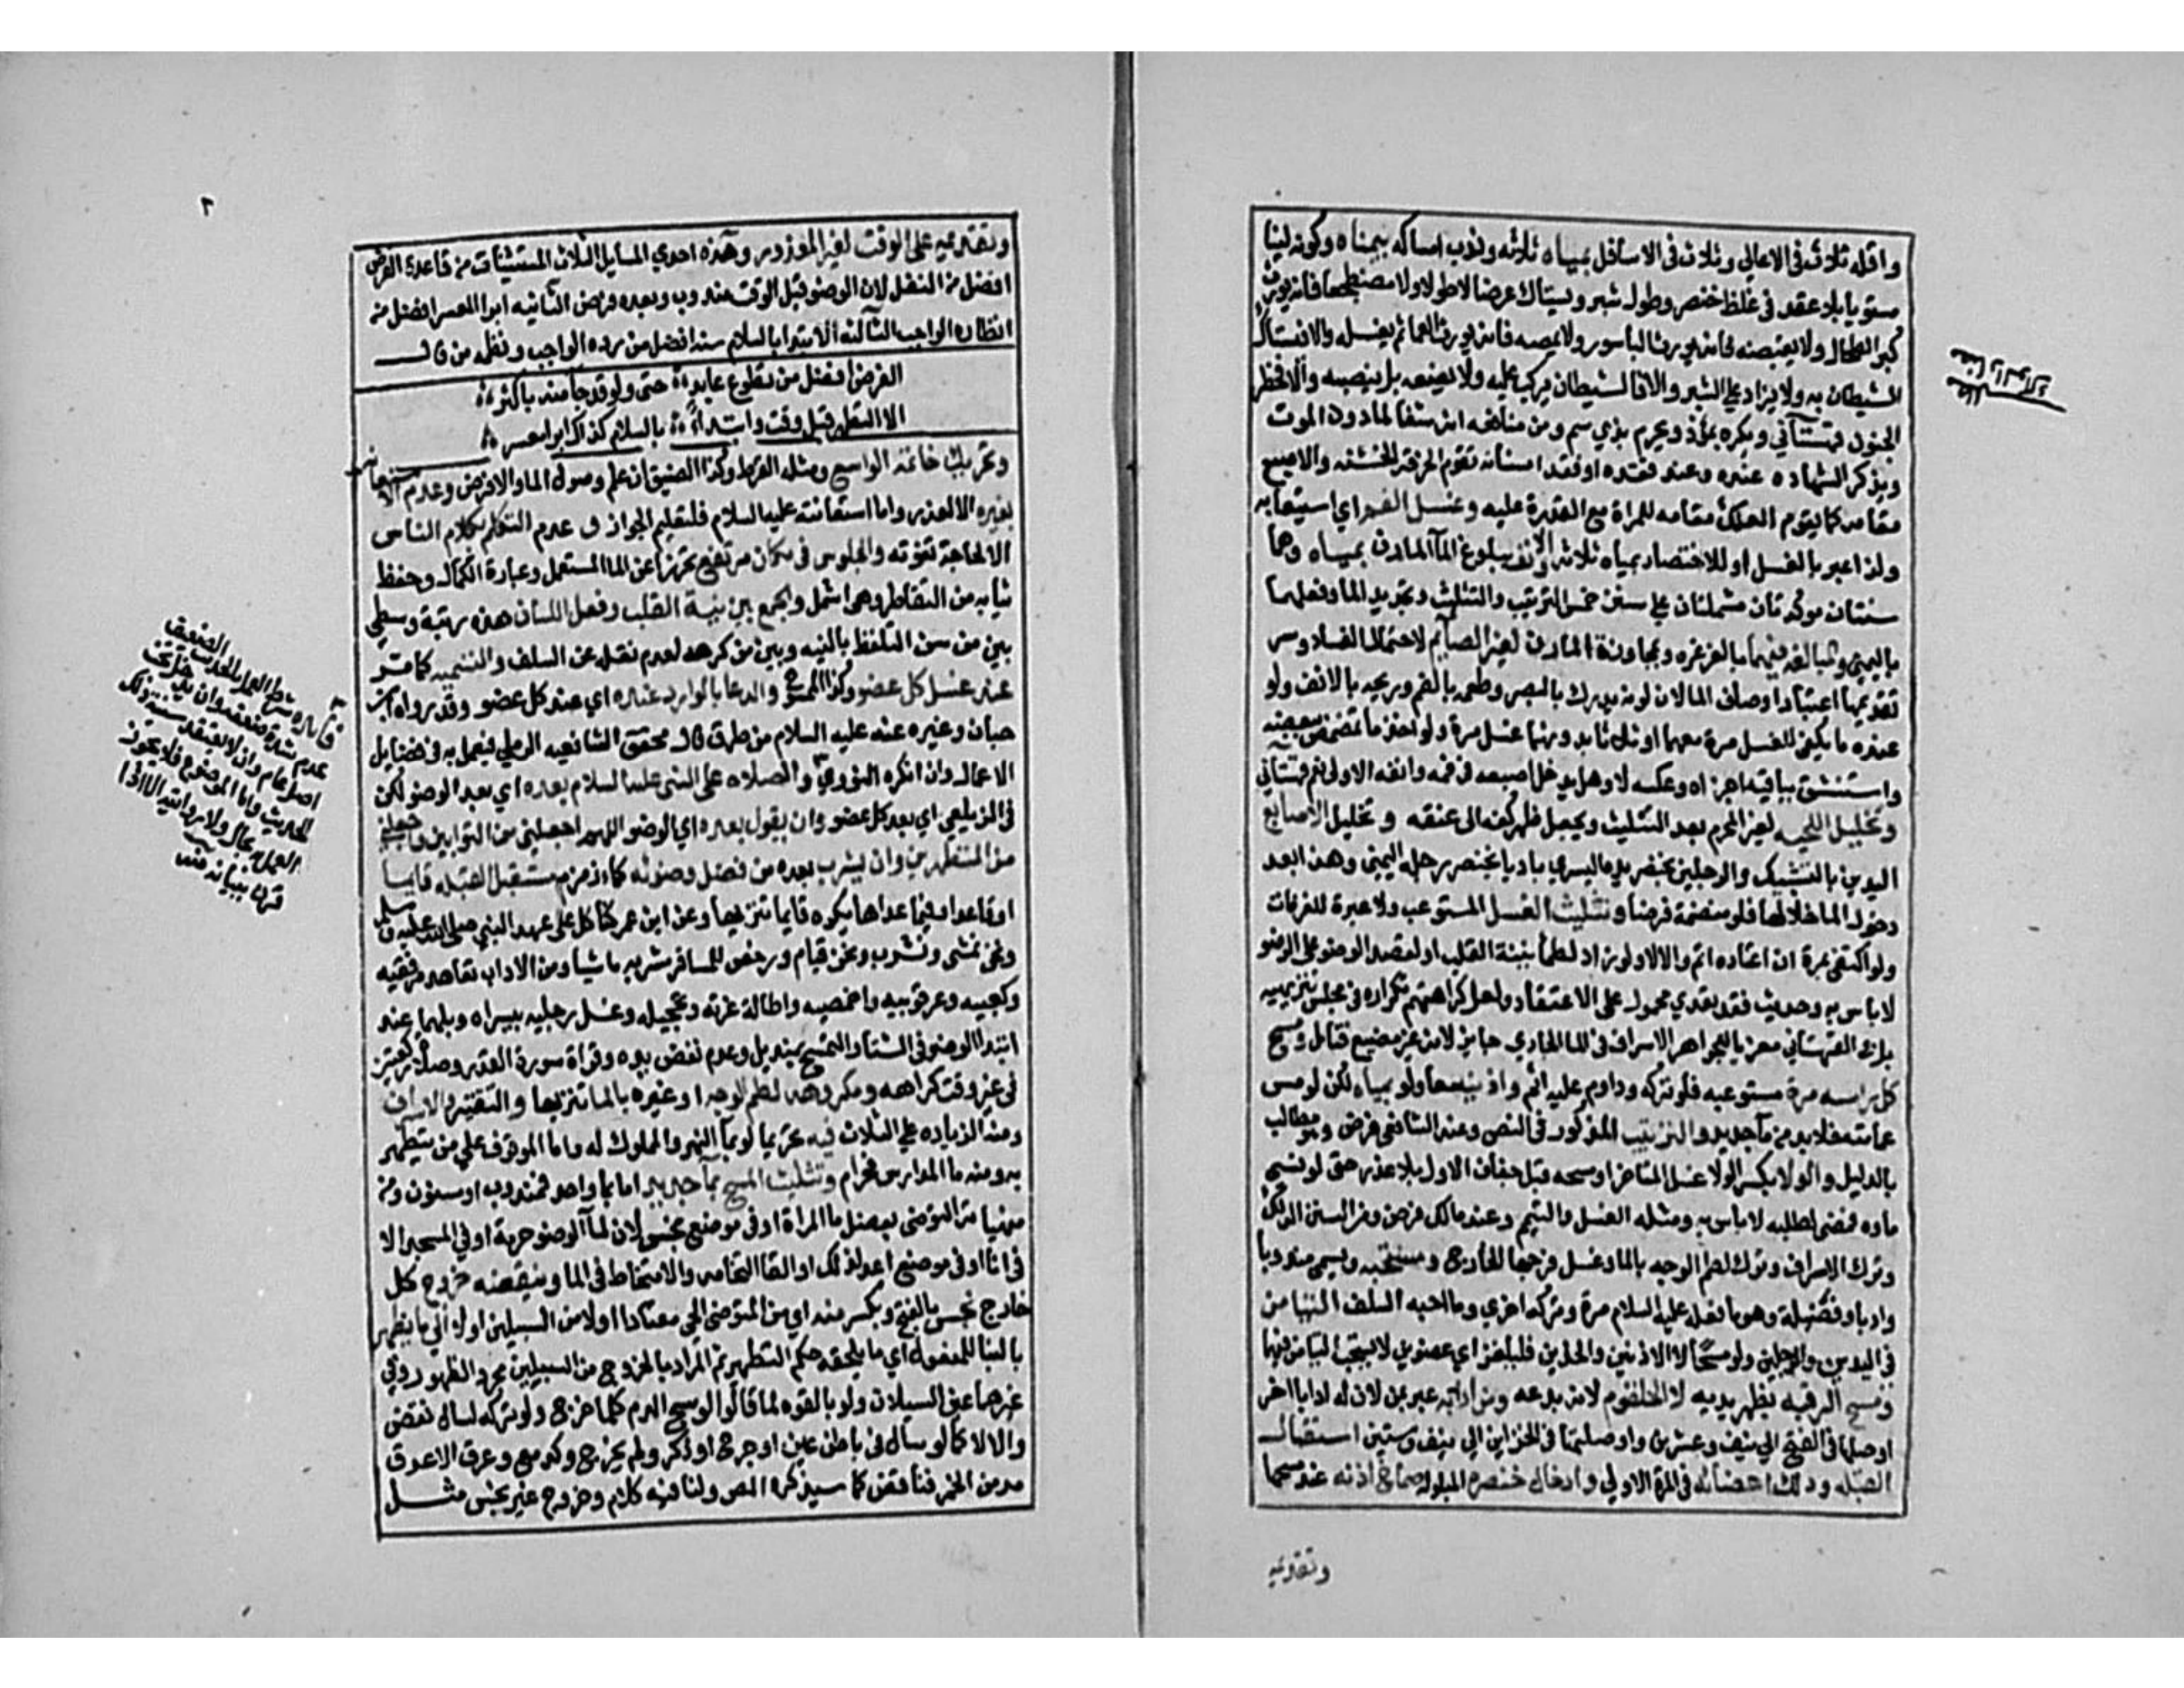 واقله ثلاث فى الاعالى وثلاث فى الاسافل بمياه ثلاثه وندب امساكه بيمناه وكونه لينا
مستويا بلا عقد فى غلظ خنصر وطول شبر ويستاك عرضا لا طولا ولا مضطجعا فانه يورث
كبر الطحال ولا يقبضه فانه يورث الباسور ولا يمصه فانه يورث العما ثم يغسله والا فيستاك
الشيطان به ولا يزاد على الشبر والا فالشيطان يركب عليه ولا يضعه بل ينصبه والا فخطر
الجنون قهستانى ويكره بمؤذ ويحرم بذي سم ومن منافعه انه شفا لما دون الموت
ويذكر الشهاده عنده وعند فقده او فقد اسنانه تقوم الخرقه الخشنه والاصبع
مقامه كما يقوم العلك مقامه للمراة مع القدرة عليه وغسل الفم اي استيعابه
ولذا عبر بالغسل او للاختصار بمياه ثلاثه والانف ببلوغ المآ المارن بمياه وهما
سنتان موكدتان مشتملتان على سنن خمس الترتيب والتثليث وتجديد الما وفعلهما
باليمنى والمبالغه فيهما بالغرغره ومجاوزة المارن لغير الصايم لاحتمال الفساد وسر
تقديمهما اعتبار اوصاف الما لان لونه يدرك بالبصر وطعمه بالفم وريحه بالانف ولو
عنده ما يكفى للغسل مرة معهما او ثلثا بدونهما غسل مرة ولو اخذ ما تمضمض ببعضه
واستنشق بباقيه اجزاه وعكسه لا وهل يدخل اصبعه فى فمه وانفه الاولى نعم قهستانى
وتخليل اللحيه لغير المحرم بعد التثليث ويجعل ظهر كفه الى عنقه وتخليل الاصابع
اليدين بالتشبيك والرجلين بخنصر يده اليسرى باديا بخنصر رجله اليمنى وهذا بعد
دخول الما خلالها فلو منضمة فرض وتثليث الغسل المستوعب ولا عبرة للغرفات
ولو اكتفى بمرة ان اعتاده اثم والا لا ولو زاد لطمأنينة القلب او لقصد الوضو على الوضو
لا باس به وحديث فقد تعدي محمول على الاعتقاد ولعل كراهتهم تكراره فى مجلس تنزيهيه
بل فى القهستانى معزيا للجواهر الاسراف فى الما الجاري جايز لانه غير مضيع فتامل ومسح
كل راسه مرة مستوعبه فلو تركه وداوم عليه اثم واذنيه معا ولو بمياه لكن لو مس
عمامته فلا بد من مآ جديد والترتيب المذكور فى النص وعند الشافعى فرض وهو مطالب
بالدليل والولا بكسر الواو غسل المتاخر او مسحه قبل جفاف الاول بلا عذر حتى لو فنى
ماوه فمضى لطلبه لا باس به ومثله الغسل والتيمم وعند مالك فرض ومن السنن الدلك
وترك الاسراف وترك لطم الوجه بالما وغسل فرجها الخارج ومستحبه ويسمى مندوبا
وادبا وفضيلة وهو ما فعله عليه السلام مرة وتركه اخري وما احبه السلف التيامن
فى اليدين والرجلين ولو مسحًا لا الاذنين والخدين فيلغز اي عضوين لا يستحب التيامن فيهما
ومسح الرقبه بظهر يديه لا الحلقوم لانه بدعه ومن ادابه عبر بمن لان له ادابا اخر
اوصلها فى الفتح الي نيف وعشرين واوصلتها فى الخزاين الي نيف وستين استقبال
القبله ودلك اعضائه فى المرة الاولي وادخال خنصره المبلوله صماخ اذنه عند مسحهما
وتقديمه
٢
وتقديمه على الوقت لغير المعذور وهذه احدي المسايل الثلاث المستثنيات من قاعدة الفرض
افضل من النفل لان الوضو قبل الوقت مندوب وبعده فرض الثانيه ابرا المعسر افضل من
انظاره الواجب الثالثه الابتدا بالسلام سنه افضل من رده الواجب ونظمه من قال
الفرض افضل من تطوع عابد حتى ولو قد جآ منه باكثر
الا التطهر قبل وقت وابتداءً بالسلام كذاك ابرا معسر
وتحريك خاتمه الواسع ومثله القرط وكذا الضيق ان علم وصول الما والا فرض وعدم الاستعانه
بغيره الا لعذر واما استعانته عليه السلام فلتعليم الجواز و عدم التكلم بكلام الناس
الا لحاجة تفوته والجلوس فى مكان مرتفع تحرزا عن الما المستعمل وعبارة الكمال وحفظ
ثيابه من التقاطر وهى اشمل والجمع بين نية القلب وفعل اللسان هذه رتبة وسطي
بين من سن التلفظ بالنيه وبين من كرهه لعدم نقله عن السلف والتسميه كما مر
عند غسل كل عضو وكذا المسوح والدعا بالوارد عنده اي عند كل عضو وقد رواه ابن
حبان وغيره عنه عليه السلام من طرق قال محقق الشافعيه الرملي فيعمل به فى فضايل
الاعمال وان انكره النووي والصلاه على النبى عليه السلام بعده اي بعد الوضو لكن
فى الزيلعى اي بعد كل عضو وان يقول بعده اي الوضو اللهم اجعلنى من التوابين واجعلنى
من المتطهرين وان يشرب بعده من فضل وضوئه كماء زمزم مستقبل القبله قايما
او قاعدا وفيما عداهما يكره قايما تنزيها وعن ابن عمر كنا كل على عهد النبى صلى الله عليه وسلم
ونحن نمشى ونشرب ونحن قيام ورخص للمسافر شربه ماشيا ومن الاداب تعاهد مرفقيه
وكعبيه وعرقوبيه واخمصيه واطالة غرته وتحجيله وغسل رجليه بيساره وبلهما عند
ابتدا الوضو فى الشتا والتمسح بمنديل وعدم نفض يده وقراة سورة القدر وصلاة ركعتين
فى غير وقت كراهه ومكروهه لطم الوجه او غيره بالما تنزيها والتقتير والاسراف
ومنه الزياده على الثلاث فيه تحريما لو بمآ النهر والمملوك له واما الموقوف على من يتطهر
به ومنه ما المدارس فحرام وتثليث المسح بمآ جديد اما بما واحد فمندوب او مسنون ومن
منهياته التوضى بفضل ما المراة او فى موضع نجس لان لمآ الوضو حرمة او في المسجد الا
فى انا او فى موضع اعد لذلك او القا النخامه والامتخاط فى الما وينقضه خروج كل
خارج نجس بالفتح ويكسر منه اي من المتوضى الحى معتادا اولا من السبيلين اولا الي ما يطهر
بالبنا للمفعول اي ما يلحقه حكم التطهير ثم المراد بالخروج من السبيلين مجرد الظهور وفى
غيرهما عين السيلان ولو بالقوه لما قالوا لو مسح الدم كلما خرج ولو تركه لسال نقض
والا لا كما لو سال فى باطن عين او جرح او ذكر ولم يخرج وكدمع وعرق الا عرق
مدمن الخمر فناقض كما سيذكره المص ولنا فيه كلام وخروج غير نجس مثل
فايده شرط العمل بالحديث الضعيف
عدم شدة ضعفه وان يدخل تحت
اصل عام وان لا يعتقد سنيه ذلك
الحديث واما الموضوع فلا يجوز
العمل به بحال ولا روايته الا اذا
قرن ببيانه منه